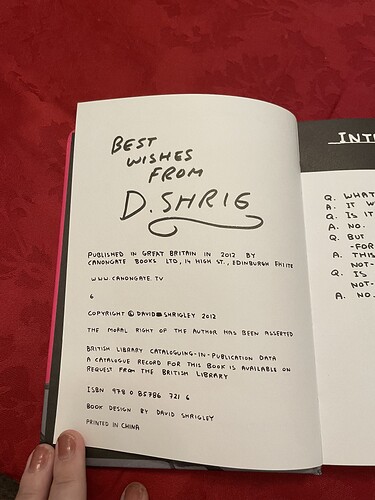 BEST
WISHES
FROM
D. SHRIG
PUBLISHED IN GREAT BRITAIN IN 2012 BY
CANONGATE BOOKS LTD, 14 HIGH ST., EDINBURGH EH1 1TE
WWW.CANONGATE.TV
6
COPYRIGHT © DAVID SHRIGLEY 2012
THE MORAL RIGHT OF THE AUTHOR HAS BEEN ASSERTED
BRITISH LIBRARY CATALOGUING-IN-PUBLICATION DATA
A CATALOGUE RECORD FOR THIS BOOK IS AVAILABLE ON
REQUEST FROM THE BRITISH LIBRARY
ISBN 978 0 85786 721 6
BOOK DESIGN BY DAVID SHRIGLEY
PRINTED IN CHINA
INT
Q. WHAT
A. IT W
Q. IS IT
A. NO.
Q. BUT
-FOR
A. THIS
NOT-
Q. IS
NOT-
A. NO.